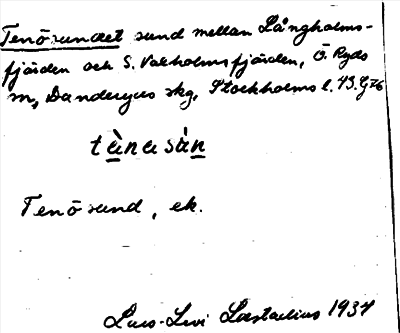 Tenösundet sund mellan Långholms-
fjärden och S. Vaxholmsfjärden, Ö. Ryds
sn, Danderyds skg, Stockholms l. 43.
tä̀nasún
Tenösund, ek.
Lars-Levi Læstadius 1934